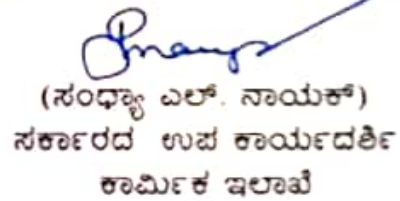 (ಸಂಧ್ಯಾ ಎಲ್. ನಾಯಕ್)
ಸರ್ಕಾರದ ಉಪ ಕಾರ್ಯದರ್ಶಿ
ಕಾರ್ಮಿಕ ಇಲಾಖೆ